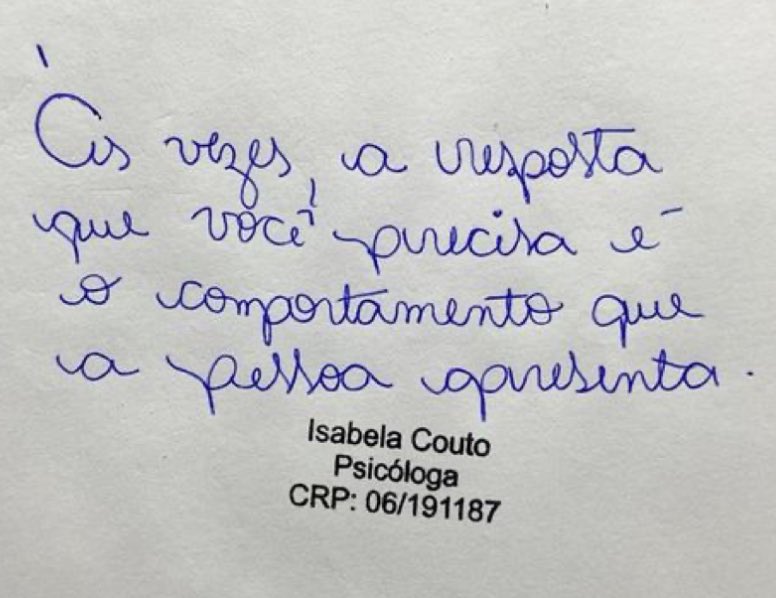 Às vezes, a resposta
que você precisa é
o comportamento que
a pessoa apresenta.
Isabela Couto
Psicóloga
CRP: 06/191187